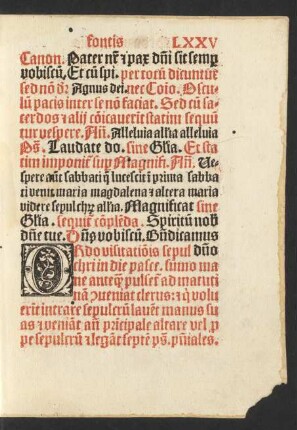 fontis LXXV
Canon. Pater nr̄ ⁊ pax dn̄i sit semꝑ
vobiscū. Et cū spi. per totū dicuntur
sed nō dr̄ Agnus dei. nec Cōio. Oscu
lū pacis inter se nō faciat. Sed cū sa-
cerdos ⁊ alij cōicauerīt statim sequi
tur vespere. An̄. Alleluia alľa alleluia
Ps̄. Laudate do. sine Gľia. Et sta
tim imponit̄ suꝑ Magnifi. An̄. Ue-
spere aūt sabbati q̄ lucescit ī prima sabba
ti venit maria magdalena ⁊ altera maria
videre sepulchrꝝ alľa. Magnificat sine
Gľia. sequit̄ cōplēda. Spiritū nob
dn̄e tue. Dn̄s vobiscū. Bn̄dicamus
ORdo visitatiōis sepul dn̄o
chri in die pasce. summo ma
ne anteq̄ꝫ pulset̄ ad matuti
nā ꝯueniat clerus: ⁊ q̇ volu
erīt intrare sepulcrū lauēt manus su
as ⁊ veniāt an̄ pr̄icipale altare vel ꝓ
pe sepulcrū ⁊ legāt septē ps̄. pn̄iales.